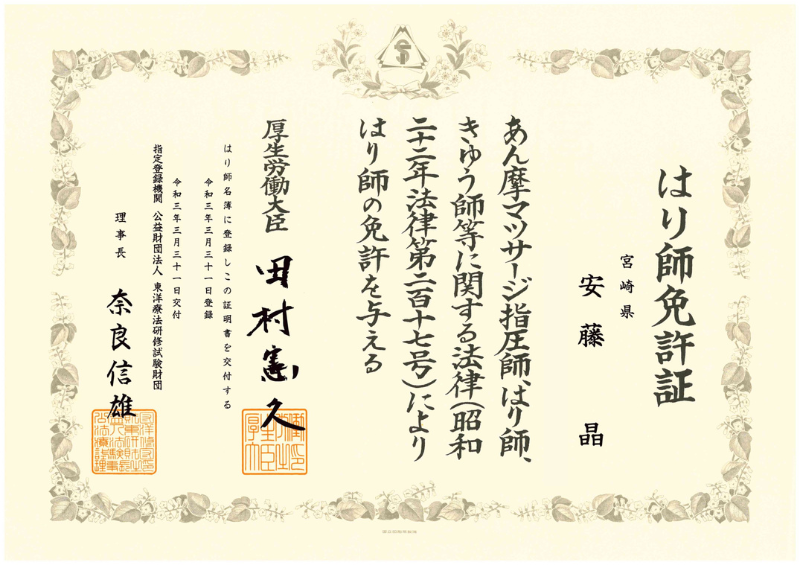 はり師免許証
宮崎県
安藤 晶
あん摩マツサージ指圧師、はり師、
きゆう師等に関する法律(昭和
二十二年法律第二百十七号)により
はり師の免許を与える
厚生労働大臣 田村憲久
はり師名簿に登録しこの証明書を交付する
令和三年三月三十一日登録
令和三年三月三十一日交付
指定登録機関 公益財団法人 東洋療法研修試験財団
理事長 奈良信雄